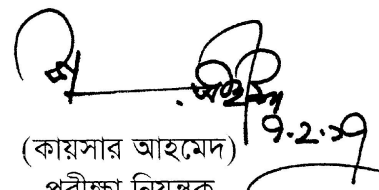 ৭.২.১৭
(কায়সার আহমেদ)
পরীক্ষা নিয়ন্ত্রক